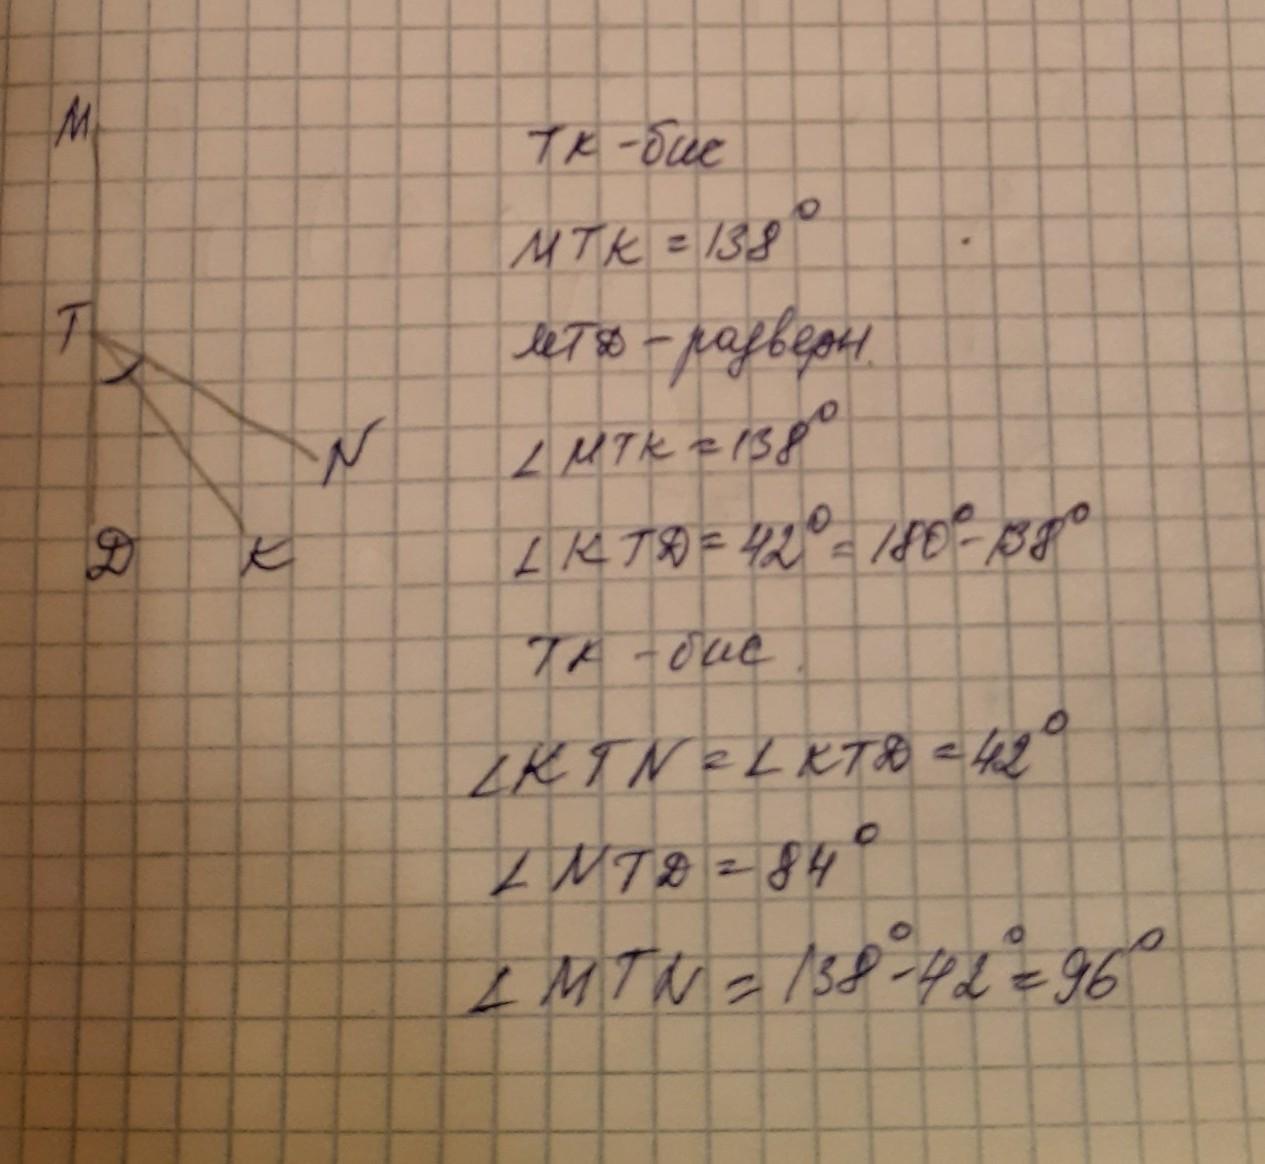 M
T
N
D
K
TK - бис
MTK = 138°
MTD - разверн.
∠ MTK = 138°
∠ KTD = 42° = 180° - 138°
TK - бис.
∠KTN = ∠KTD = 42°
∠ NTD = 84°
∠ MTN = 138° - 42° = 96°